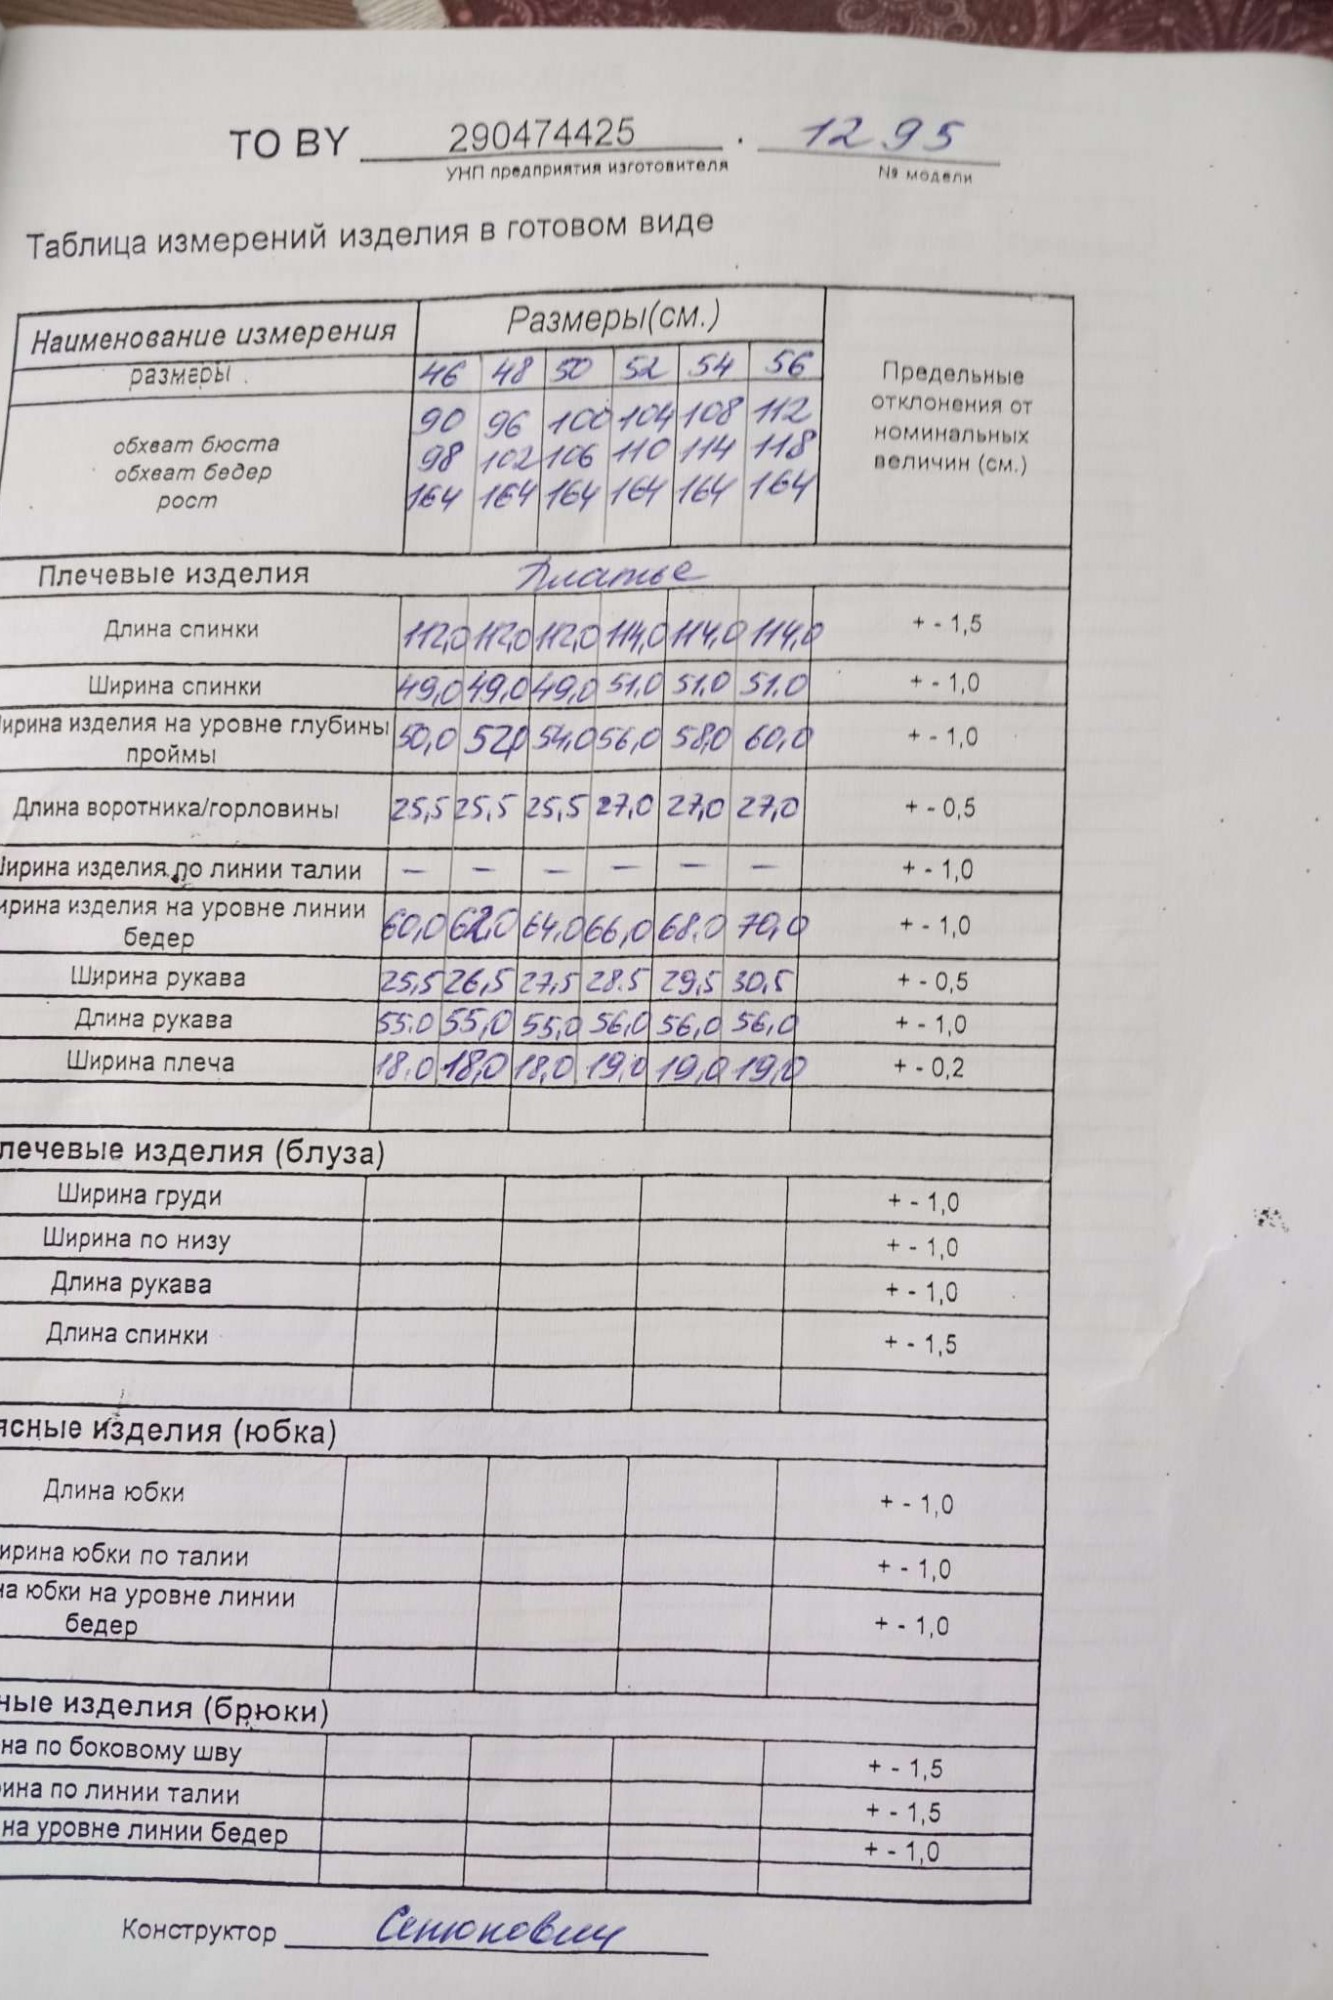 ТО BY 290474425 . 1295
УНП предприятия изготовителя № модели
Таблица измерений изделия в готовом виде
Наименование измерения Размеры(см.) Предельные отклонения от номинальных величин (см.)
размеры 46 48 50 52 54 56
обхват бюста 90 96 100 104 108 112
обхват бедер 98 102 106 110 114 118
рост 164 164 164 164 164 164
Плечевые изделия Платье
Длина спинки 112,0 112,0 112,0 114,0 114,0 114,0 + - 1,5
Ширина спинки 49,0 49,0 49,0 51.0 51.0 51.0 + - 1,0
ирина изделия на уровне глубины
проймы 50,0 52,0 54,0 56,0 58,0 60,0 + - 1,0
Длина воротника/горловины 25,5 25,5 25,5 27,0 27,0 27,0 + - 0,5
ирина изделия по линии талии – – – – – – + - 1,0
ирина изделия на уровне линии
бедер 60,0 62,0 64,0 66,0 68.0 70,0 + - 1,0
Ширина рукава 25,5 26,5 27,5 28.5 29,5 30,5 + - 0,5
Длина рукава 55.0 55,0 55,0 56,0 56,0 56,0 + - 1,0
Ширина плеча 18.0 18,0 18,0 19,0 19,0 19,0 + - 0,2
лечевые изделия (блуза)
Ширина груди + - 1,0
Ширина по низу + - 1,0
Длина рукава + - 1,0
Длина спинки + - 1,5
ясные изделия (юбка)
Длина юбки + - 1,0
ирина юбки по талии + - 1,0
на юбки на уровне линии
бедер + - 1,0
ные изделия (брюки)
на по боковому шву + - 1,5
ина по линии талии + - 1,5
на уровне линии бедер + - 1,0
Конструктор